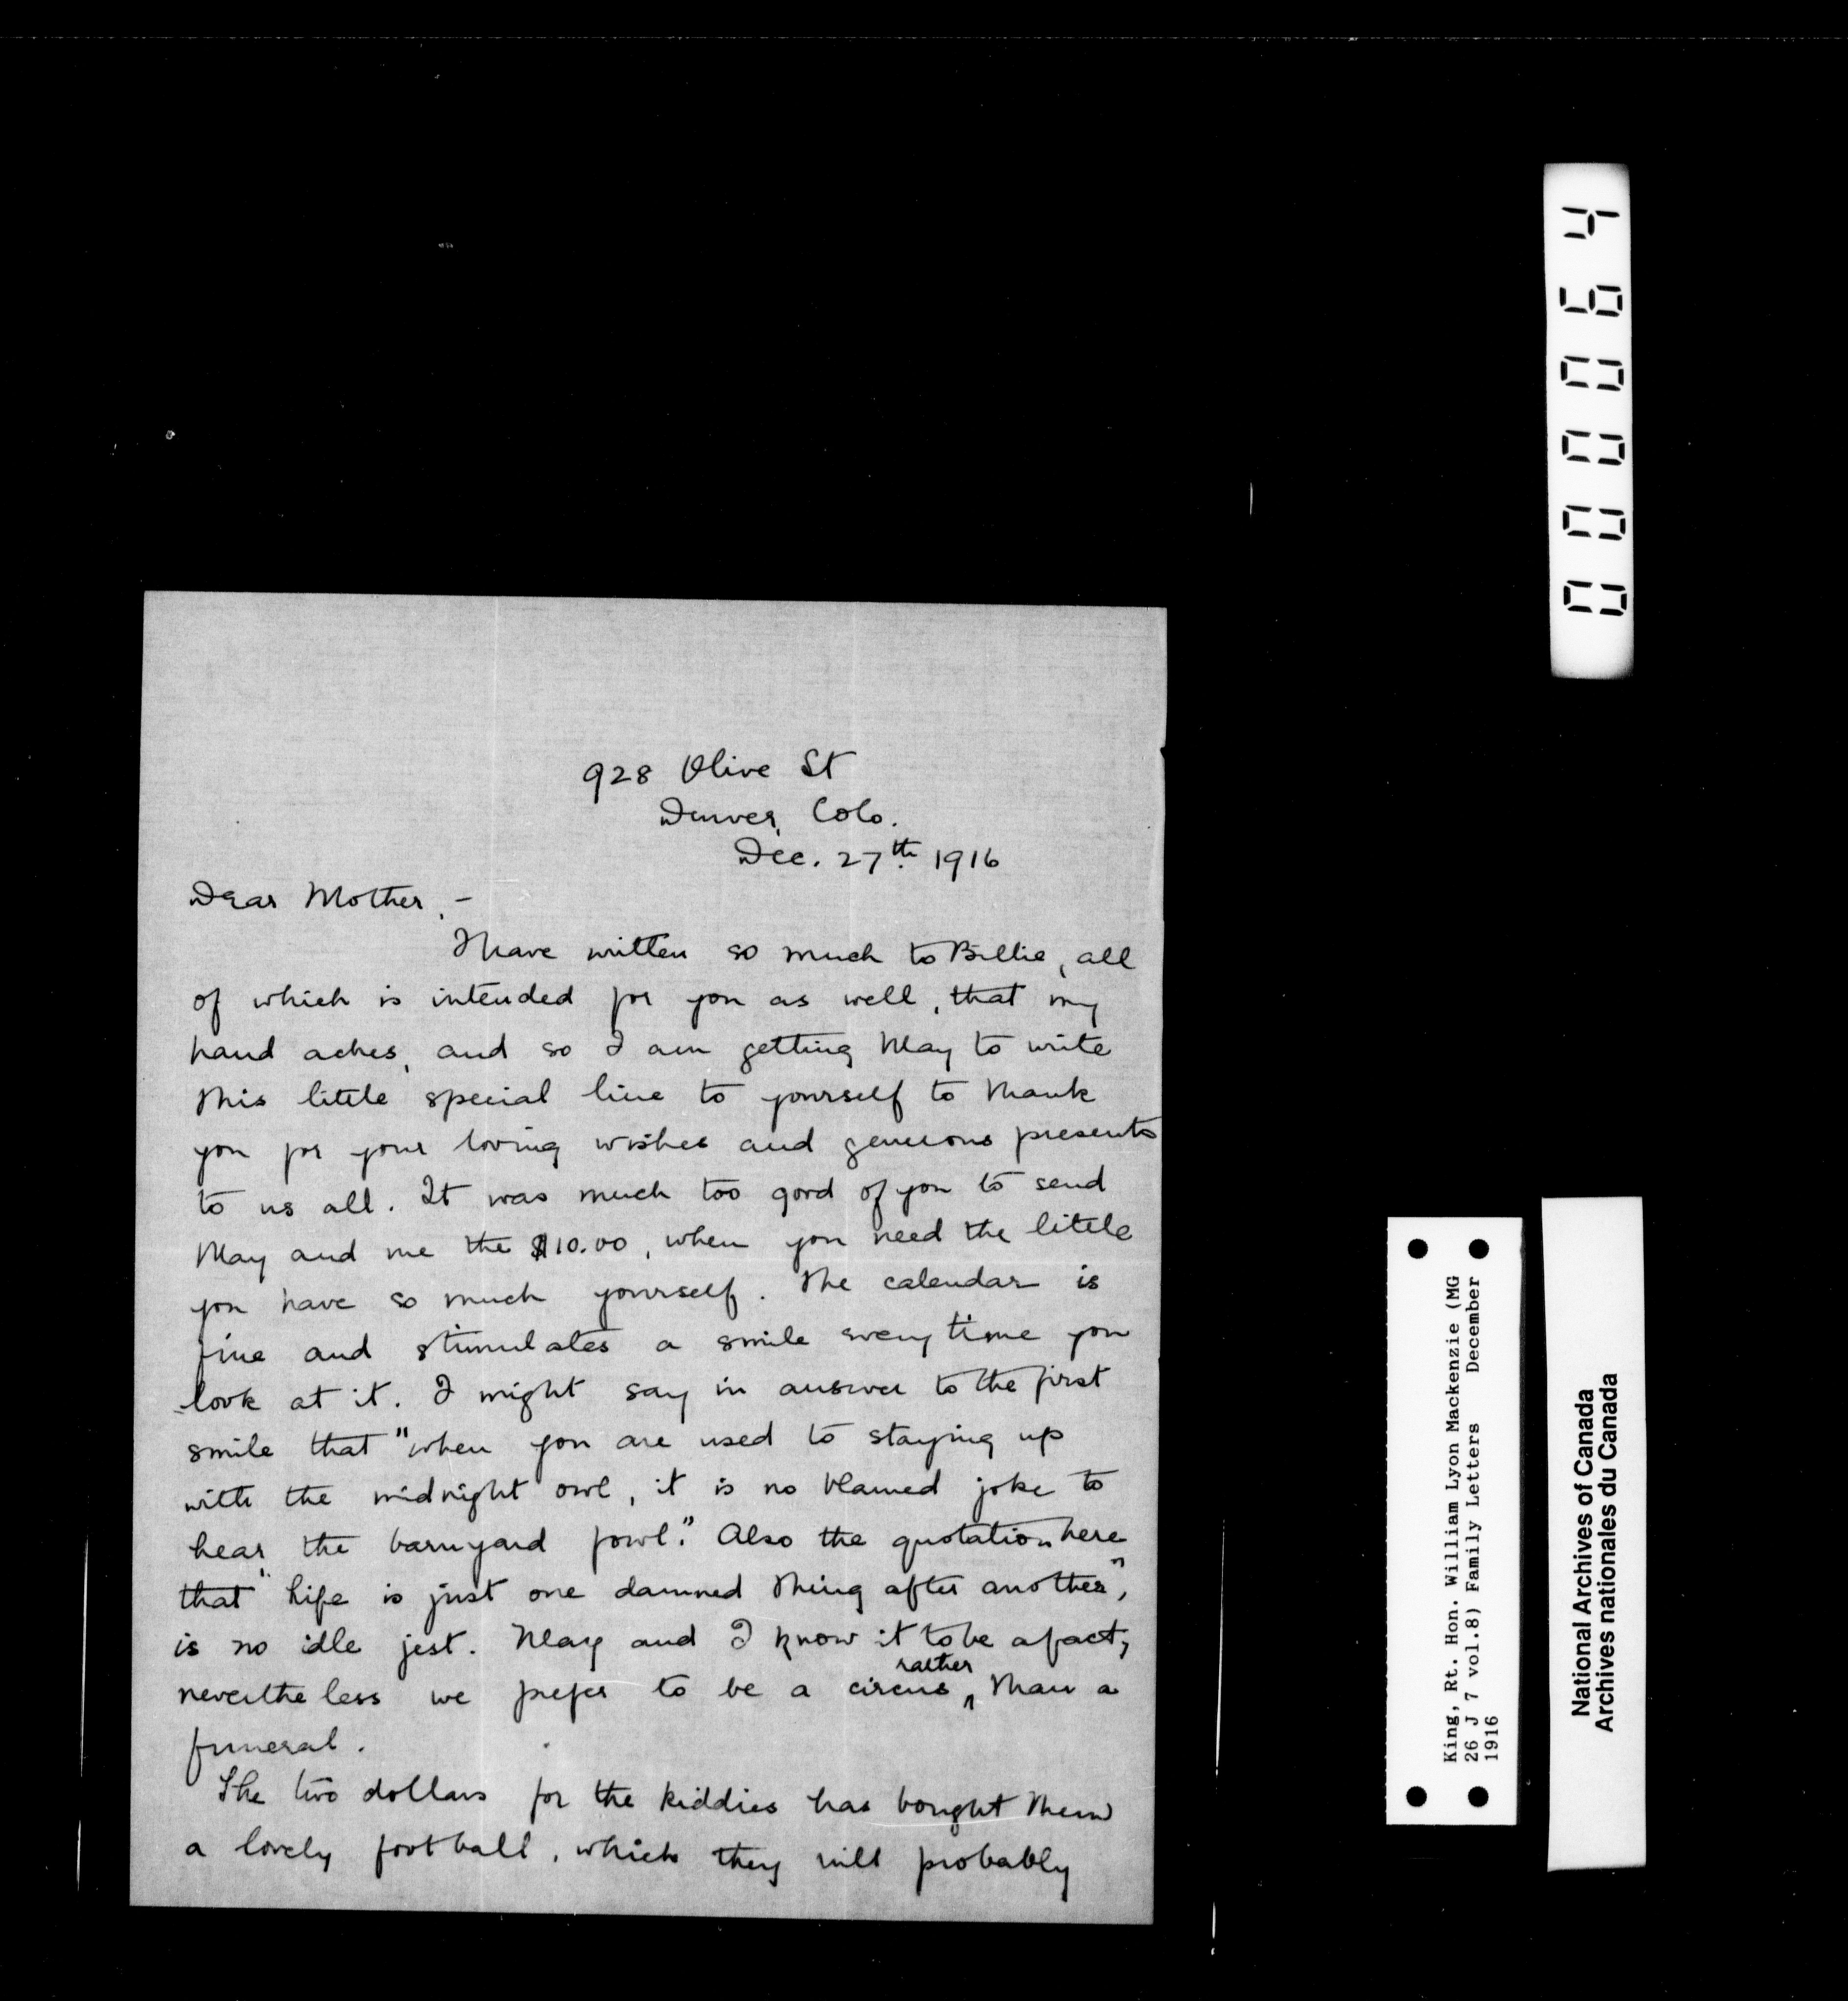 928 Olive St
Denver, Colo.
Dec. 27th 1916
Dear Mother,-
I have written so much to Billie, all
of which is intended for you as well, that my
hand aches, and so I am getting May to write
this little special line to yourself to thank
you for your loving wishes and generous presents
to us all. It was much too good of you to send
May and me the $10.00, when you need the little
you have so much yourself. The calendar is
fine and stimulates a smile every time you
look at it. I might say in answer to the first
smile that "when you are used to staying up
with the midnight owl, it is no blamed joke to
hear the barnyard fowl." Also the quotation here
that "Life is just one damned thing after another",
is no idle jest. May and I know it to be a fact,
nevertheless we prefer to be a circus rather than a
funeral.
The two dollars for the kiddies has bought them
a lovely football, which they will probably
000064
King, Rt. Hon. William Lyon Mackenzie (MG
26 J 7 vol.8) Family Letters December
1916
National Archives of Canada
Archives nationales du Canada